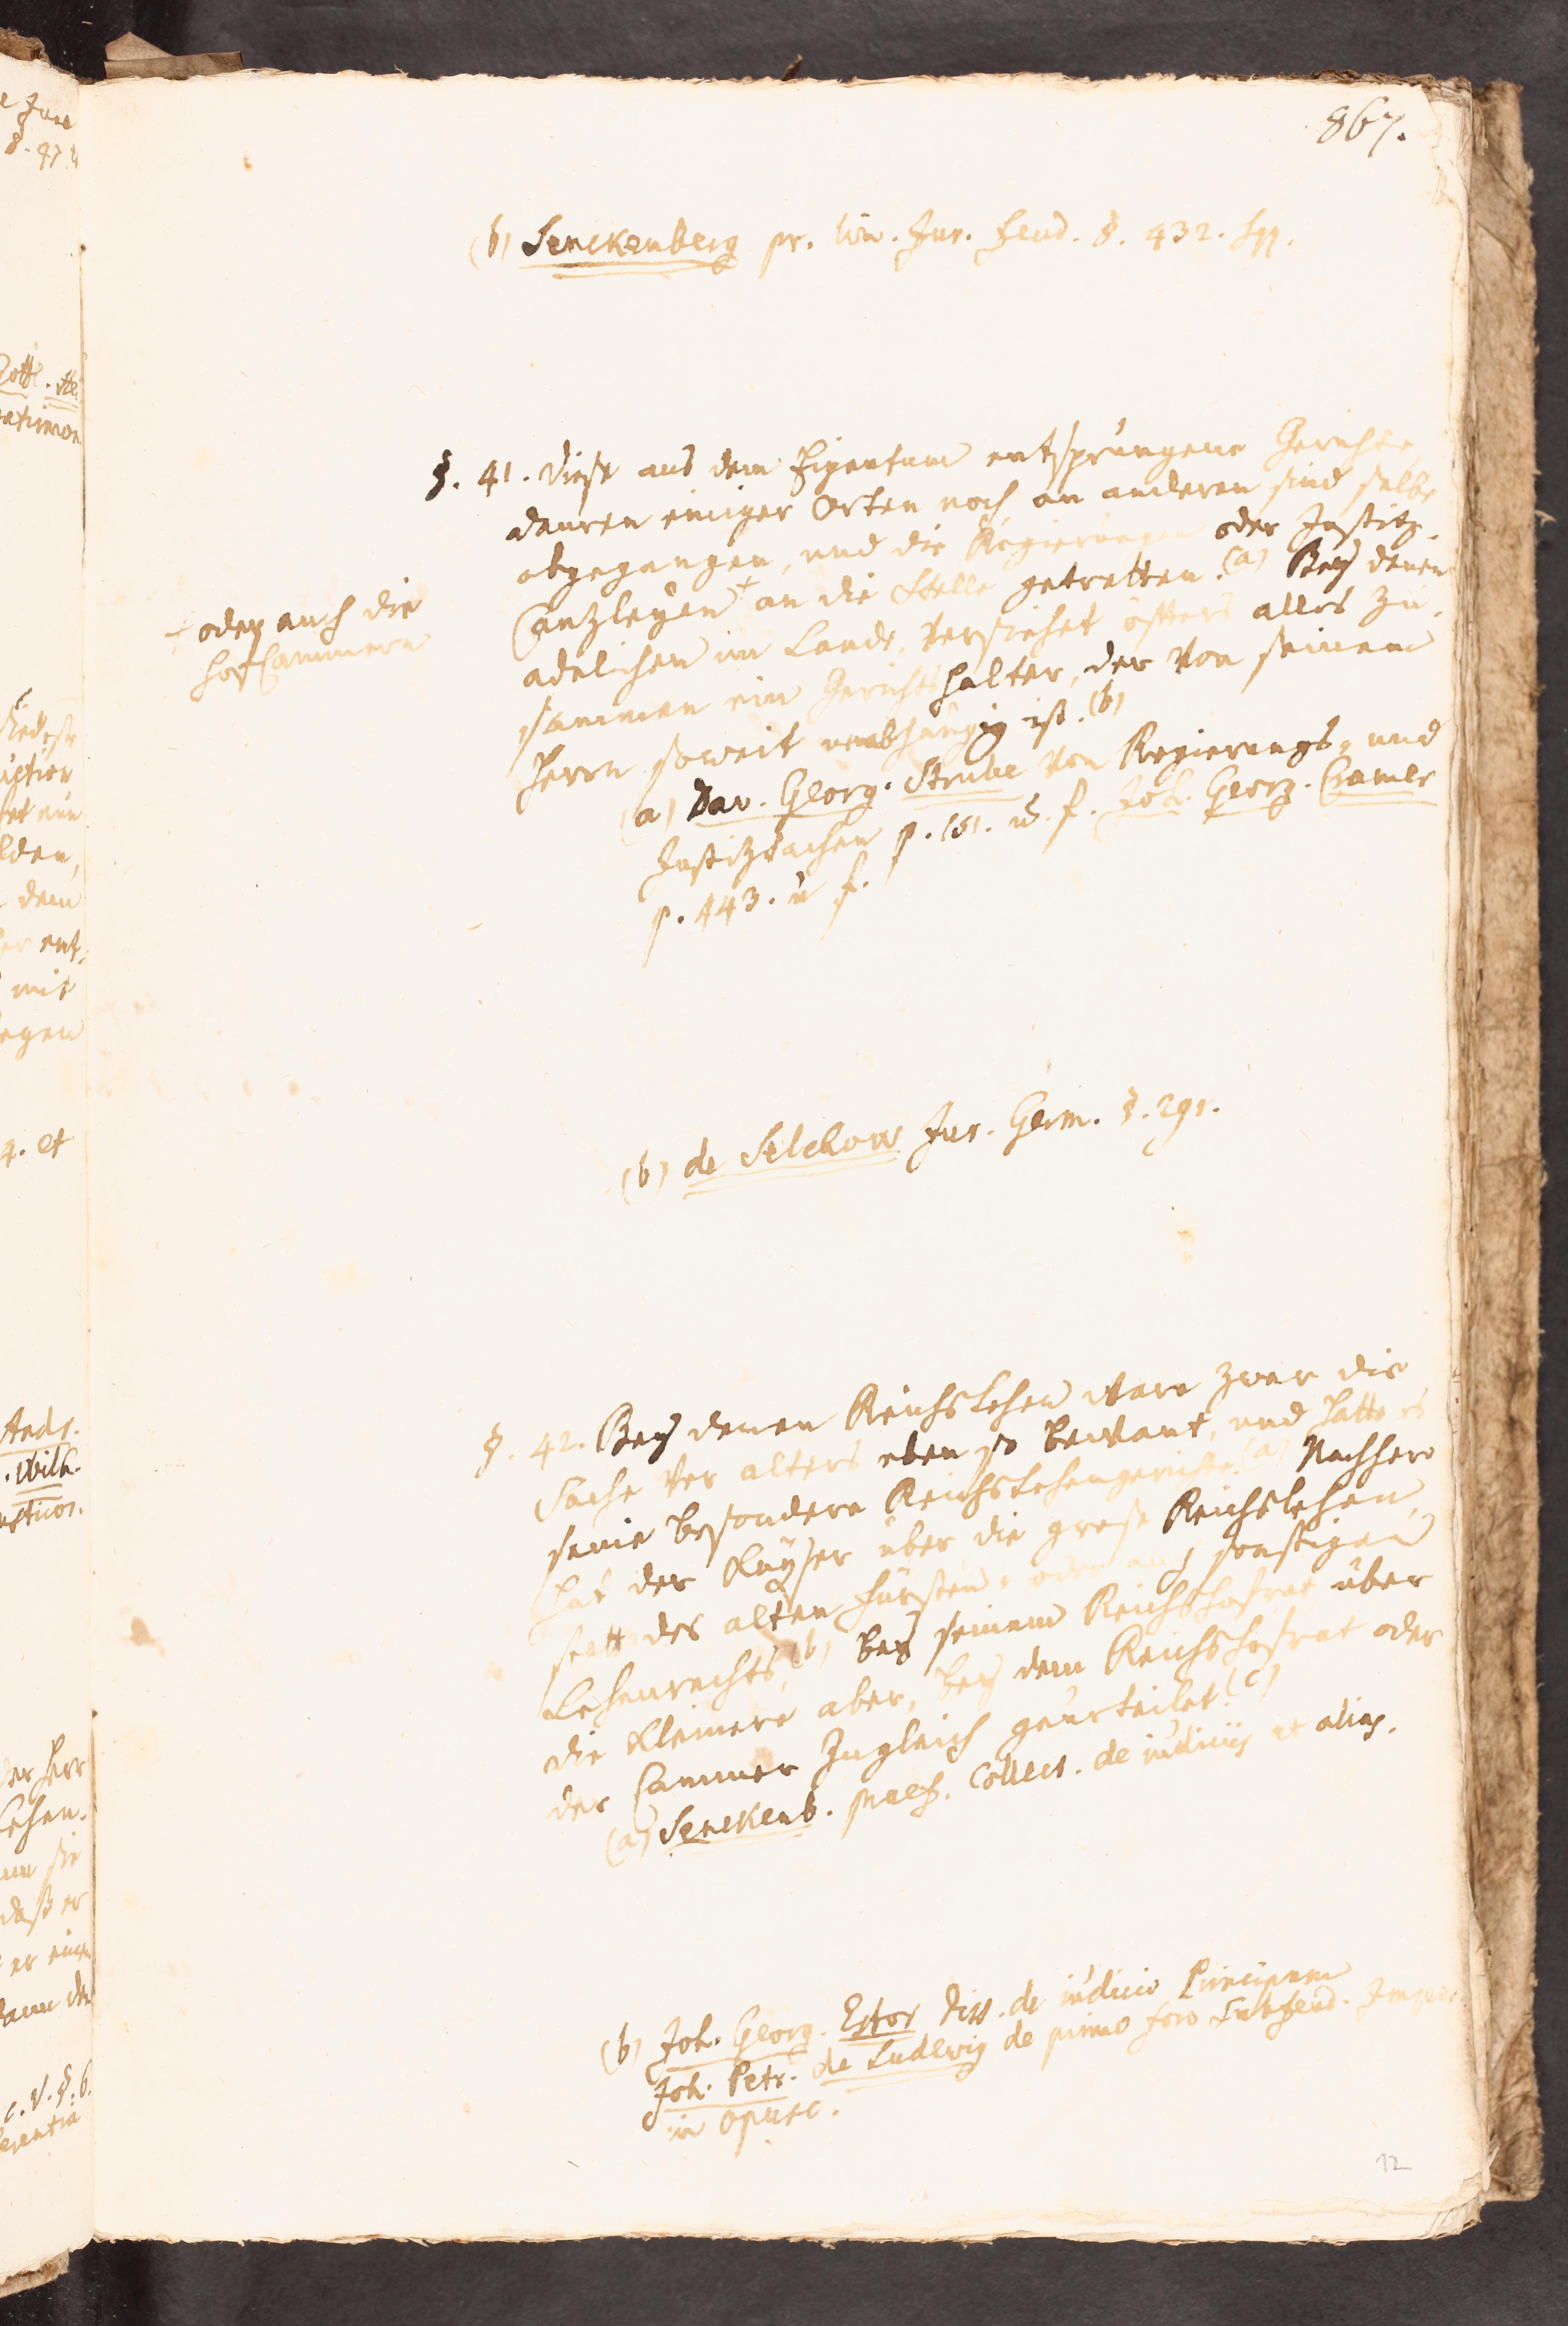 867.
(b) Senckenberg pr. lin. Jur. feud. §. 432. sqq.
§. 41. Diese aus dem Eigentum entsprungene Gerichte,
dauren einiger Orten noch an anderen sind selbe
abgegangen, und die Regierungen oder Justitz-
Canzleyen + an die Stelle getretten. (a) Bey denen
adelichen im Lande, versiehet öfters alles zu-
sammen ein Gerichtshalter, der von seinem
Herrn soweit unabhängig ist. (b)
+ oder auch die
HofCammern
(a) Dav. Georg. Strube von Regierungs- und
Justitzsachen p. 151. u. f. Joh. Georg. Cramer
p. 443. u f.
(b) de Selchow Jur. Germ. §. 291.
§. 42. Bey denen Reichslehen ware zwar die
Sache vor alters eben so bewant, und hatte es
seine besondere Reichslehengerichte. (a) Nachhero
hat der Kayser über die grose Reichslehen,
statt des alten Fürsten- oder auch sonstigen
Lehenrechts, (b) bey seinem Reichshofrat über
die kleinere aber, bey dem Reichshofrat oder
der Cammer zugleich geurteilet. (c)
(a) Senckenb. praef. Collect. de iudiciis et alias.
(b) Joh. Georg. Estor Diss. de iudicio Principum
Joh. Petr. de Ludewig de primo foro Subfeud. Imper.
in opusc.
12